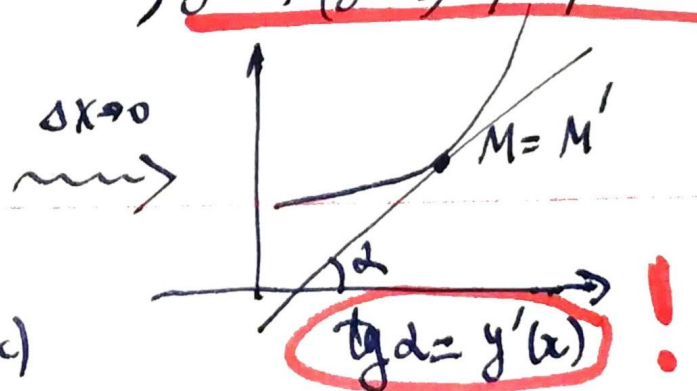 Δx→0
M = M′
α
tg α = y′(x)
!